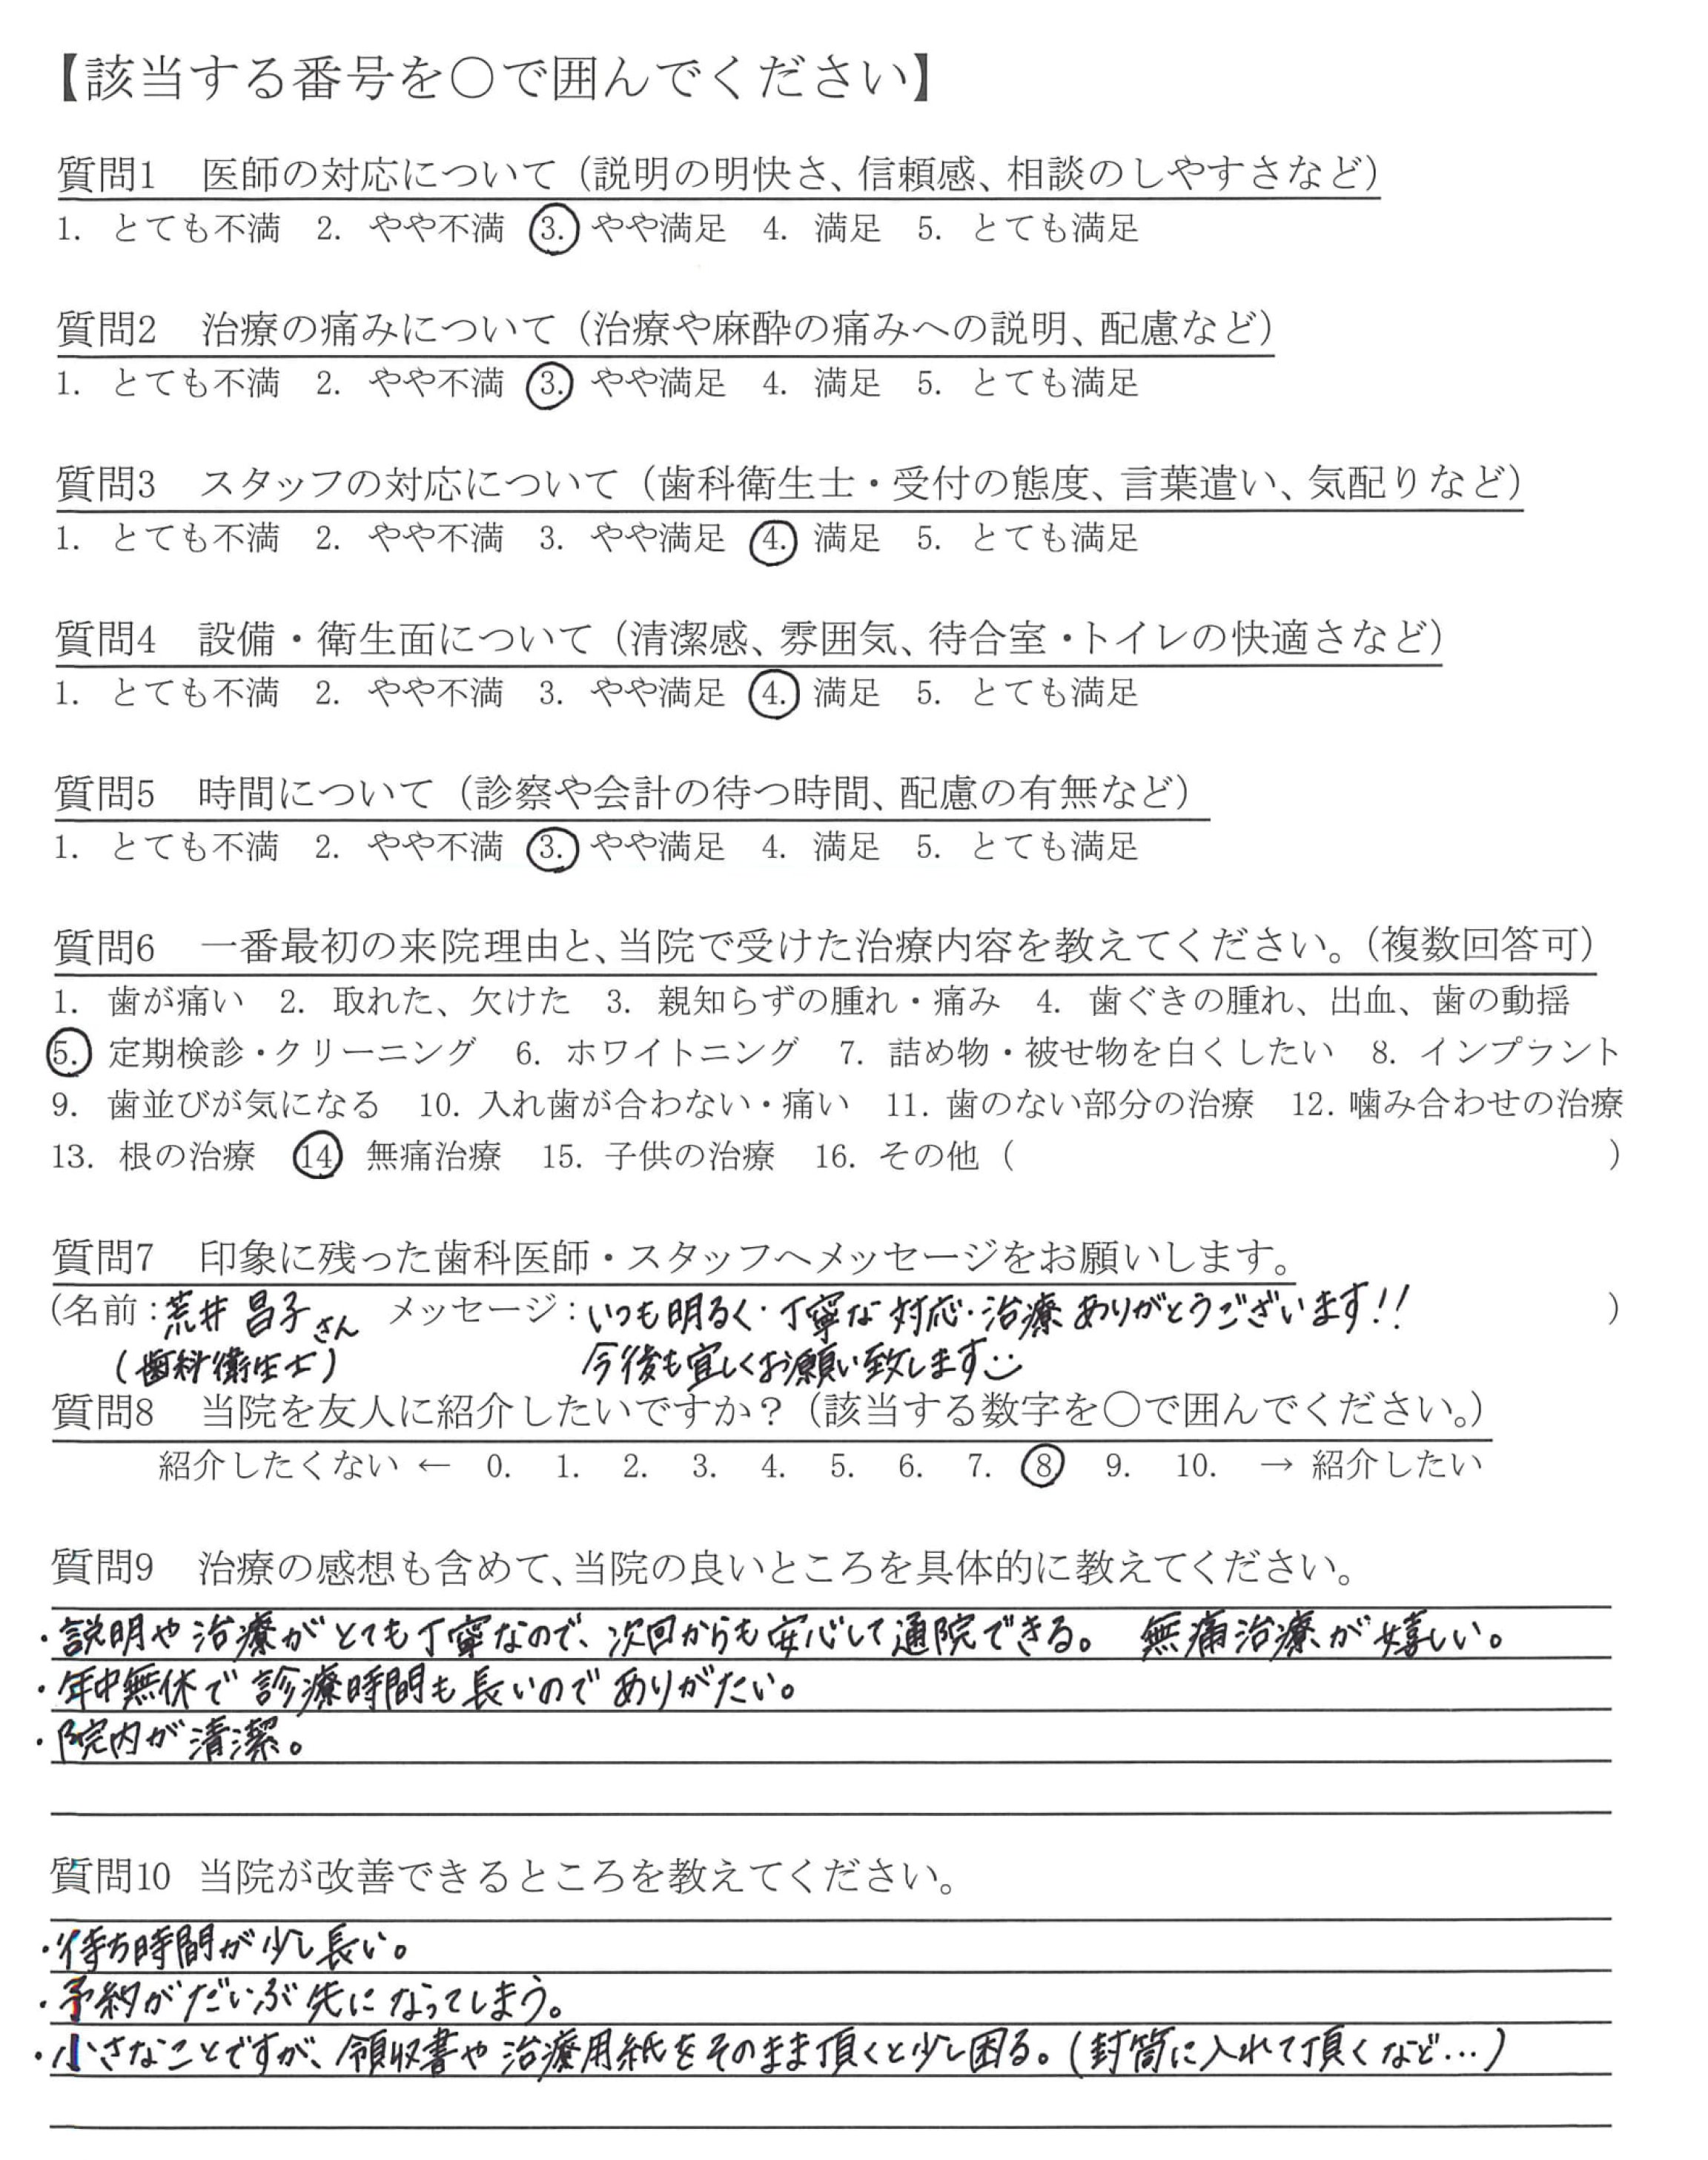 【該当する番号を○で囲んでください】
質問1　医師の対応について（説明の明快さ、信頼感、相談のしやすさなど）
1. とても不満　2. やや不満　3. やや満足　4. 満足　5. とても満足
質問2　治療の痛みについて（治療や麻酔の痛みへの説明、配慮など）
1. とても不満　2. やや不満　3. やや満足　4. 満足　5. とても満足
質問3　スタッフの対応について（歯科衛生士・受付の態度、言葉遣い、気配りなど）
1. とても不満　2. やや不満　3. やや満足　4. 満足　5. とても満足
質問4　設備・衛生面について（清潔感、雰囲気、待合室・トイレの快適さなど）
1. とても不満　2. やや不満　3. やや満足　4. 満足　5. とても満足
質問5　時間について（診察や会計の待つ時間、配慮の有無など）
1. とても不満　2. やや不満　3. やや満足　4. 満足　5. とても満足
質問6　一番最初の来院理由と、当院で受けた治療内容を教えてください。（複数回答可）
1. 歯が痛い　2. 取れた、欠けた　3. 親知らずの腫れ・痛み　4. 歯ぐきの腫れ、出血、歯の動揺
5. 定期検診・クリーニング　6. ホワイトニング　7. 詰め物・被せ物を白くしたい　8. インプラント
9. 歯並びが気になる　10. 入れ歯が合わない・痛い　11. 歯のない部分の治療　12. 噛み合わせの治療
13. 根の治療　14 無痛治療　15. 子供の治療　16. その他（　）
質問7　印象に残った歯科医師・スタッフへメッセージをお願いします。
（名前：荒井 昌子さん　メッセージ：いつも明るく・丁寧な対応・治療ありがとうございます!!　）
（歯科衛生士）　今後も宜しくお願い致します
質問8　当院を友人に紹介したいですか？（該当する数字を○で囲んでください。）
紹介したくない ← 0. 1. 2. 3. 4. 5. 6. 7. 8 9. 10. → 紹介したい
質問9　治療の感想も含めて、当院の良いところを具体的に教えてください。
・説明や治療がとても丁寧なので、次回からも安心して通院できる。　無痛治療が嬉しい。
・年中無休で診療時間も長いのでありがたい。
・院内が清潔。
質問10 当院が改善できるところを教えてください。
・待ち時間が少し長い。
・予約がだいぶ先になってしまう。
・小さなことですが、領収書や治療用紙をそのまま頂くと少し困る。（封筒に入れて頂くなど…）